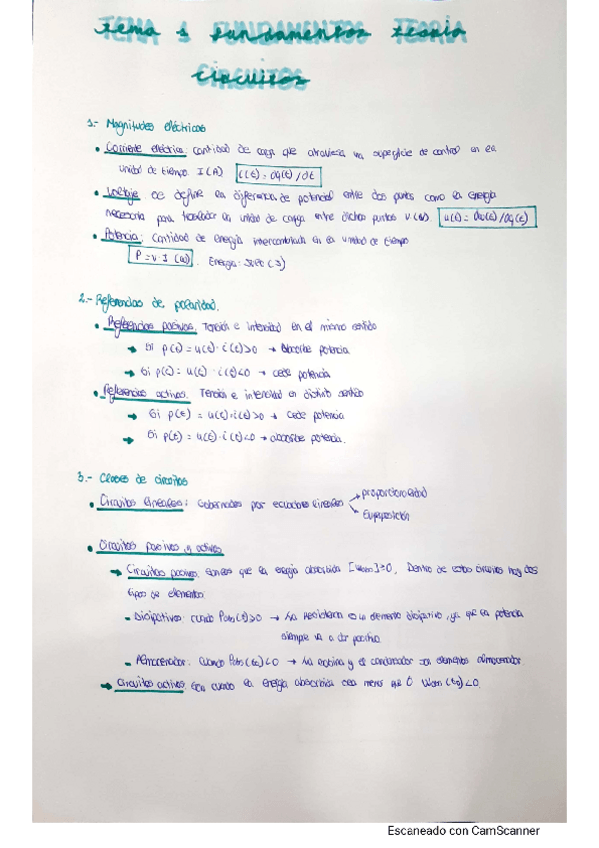 TEMA 1 FUNDAMENTOS TEORIA
CIRCUITOS
1.- Magnitudes eléctricas
• Corriente eléctrica: cantidad de carga que atraviesa una superficie de control en la
unidad de tiempo. I (A) i(t) = dq(t)/dt
• Voltaje: se define la diferencia de potencial entre dos puntos como la energía
necesaria para trasladar la unidad de carga entre dichos puntos V (V) u(t) = dw(t)/dq(t)
• Potencia: Cantidad de energía intercambiada en la unidad de tiempo
P = V·I (W) . Energía: Julio (J)
2.- Referencias de polaridad.
• Referencias pasivas. Tensión e intensidad en el mismo sentido
→ Si p(t) = u(t) · i(t) > 0 → absorbe potencia
→ Si p(t) = u(t) · i(t) < 0 → cede potencia
• Referencias activas. Tensión e intensidad en distinto sentido
→ Si p(t) = u(t)·i(t) > 0 → Cede potencia
→ Si p(t) = u(t)·i(t) < 0 → absorbe potencia.
3.- Clases de circuitos
• Circuitos lineales: Gobernados por ecuaciones lineales → proporcionalidad
→ Superposición
• Circuitos pasivos y activos
→ Circuitos pasivos. que la energía absorbida [Wabs] ≥ 0. Dentro de estos circuitos hay dos
tipos de elementos:
- Disipativos: cuando Pabs(t) > 0 → La resistencia es un elemento disipativo, ya que la potencia
siempre va a dar positiva.
- Almacenador: Cuando Pabs(to) < 0 → La bobina y el condensador son elementos almacenador
→ Circuitos activos. Son cuando la energía absorbida sea menor que 0 Wabs(to) < 0.
Escaneado con CamScanner